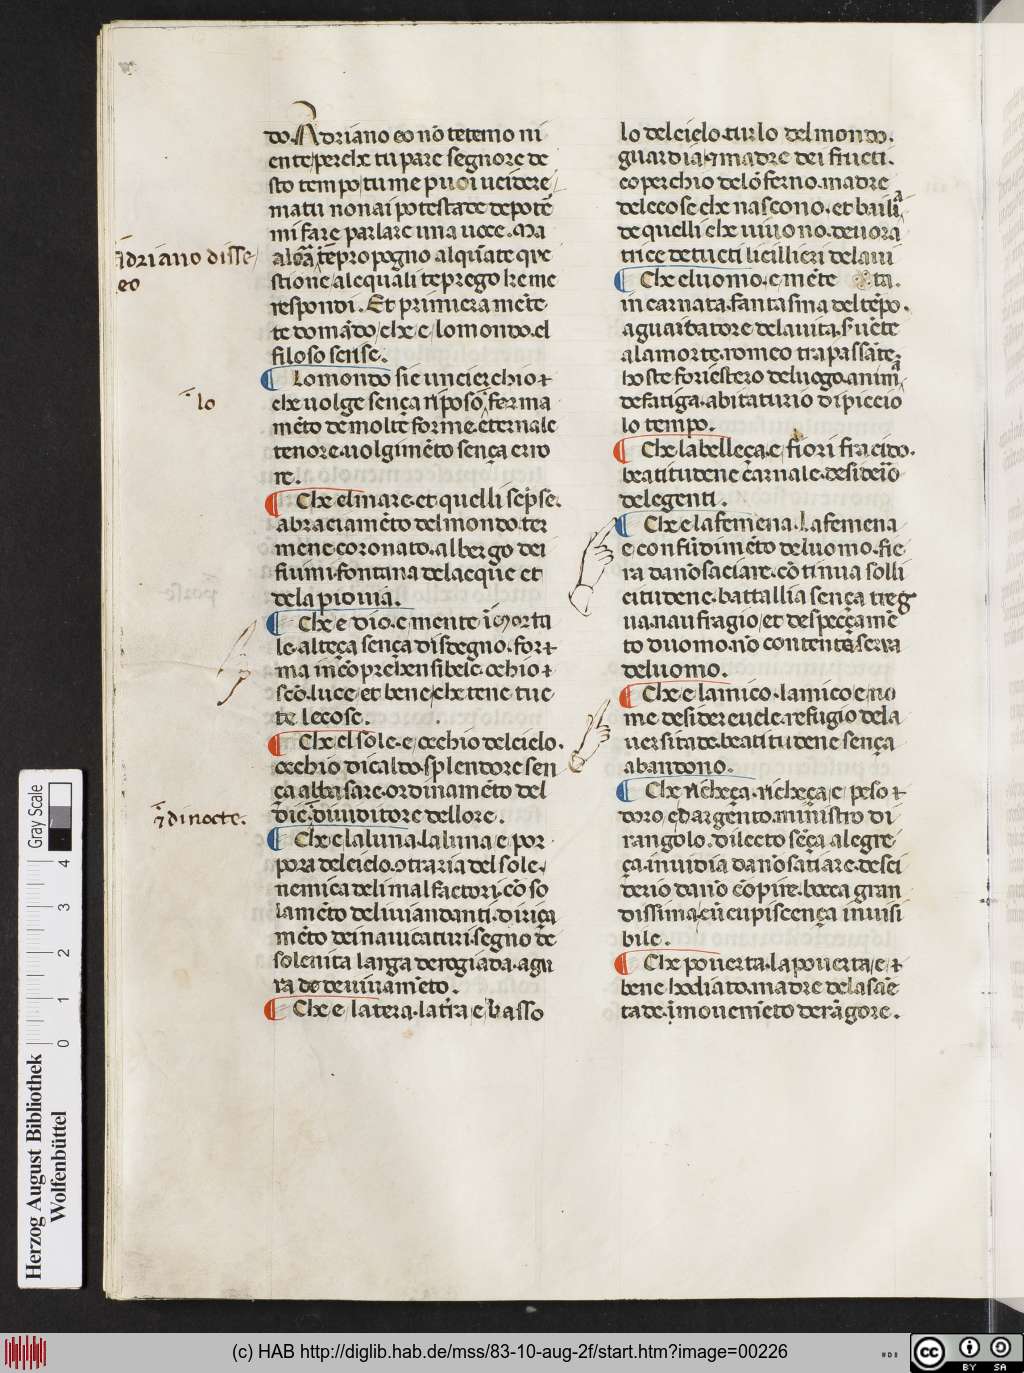 do. Adriano eo nō te temo ni
ente perche tu pare segnore de
sto tempo tu me puoi ucidere
ma tu non ai potestate de potē
mi fare parlare una uoce. Ma
te propogno alquāte que
stione, ale quali te prego ke me
respondi. Et primieramēte
te domādo, che e, lo mondo. el
filoso sense.
Adriano disse
eo
Lo mondo sie un cierchio
che uolge sença riposo, forma
mēto de molte forme. eternale
tenore. uolgimēto sença erro
re.
lo
Che el mare. et quelli sēpse.
abraciamēto del mondo. ter
mene coronato. albergo dei
fiumi. fontana de lacque et
de la piouia.
Che e dio. e mente īmorta
le. alteça sença disdegno. for
ma incōprehensibele. ochio
scō. luce, et bene, che tene tuc
te le cose.
Che el sole. e, occhio del cielo.
occhio di caldo. splendore sen
ça abbasare. ordinamēto del
die. diuiditore dellore.
di nocte.
Che e la luna. la luna e por
pora del cielo. 9traria del sole.
nemica deli malfactori. cōso
lamēto de li uiandanti. diriça
mēto dei nauicaturi. segno de
solenita larga de rogiada. agu
ra de deuinamēto.
Che e, la tera. la tīra, e, basso
lo del cielo. turlo del mondo.
guardia, 7 madre dei fructi.
coperchio de lōferno. madre
dele cose che nascono. et bailia
de quelli che uiuono. deuora
trice de tucti li cillieri de la ui
Che el uomo. e, mēte ta.
in carnata. fantasma del tēpo.
aguardatore dela uita. suēte
ala morte. romeo trapassāte.
hoste foriestero de luogo. anima
de fatiga. abitaturio di piccio
lo tempo.
Che la belleça. e, fiori fracido.
beatitudene carnale. desiderio
de le genti.
Che e la femena. La femena
e confūdimēto de luomo. fie
ra danō saciare. cōtinua solli
citudene. battallia sença treg
ua. naufragio, et despecçamē
to duomo. nō contento. serua
de luomo.
Che e lamico. lamico e, no
me desidereuele. refugio de la
uersitade. beatitudene sença
abandono.
Che richeça. richeça, e, peso
doro e dargento. ministro di
rangolo. dilecto sēça alegre
ça. inuidia danō satiare. desci
derio danō cōpire. bocca gran
dissima. cū cupiscença inuisi
bile.
Che pouerta. la pouerta, e,
bene hodiato. madre dela sāe
tade. īmouemēto de rāgore.
Herzog August Bibliothek
Wolfenbüttel
0 1 2 3 4
Gray Scale
(c) HAB http://diglib.hab.de/mss/83-10-aug-2f/start.htm?image=00226
cc BY SA